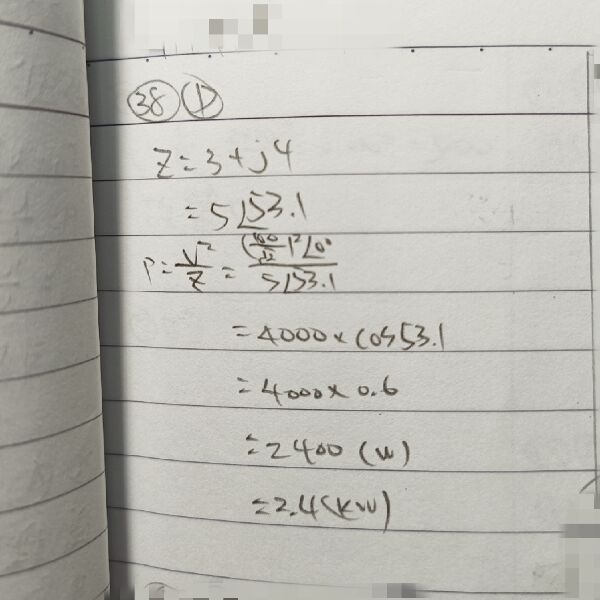 38 ①
Z=3+j4
=5∠53.1
P=V²/Z=(/√2)²∠0°/5∠53.1
=4000×cos53.1
=4000×0.6
=2400(W)
=2.4(KW)